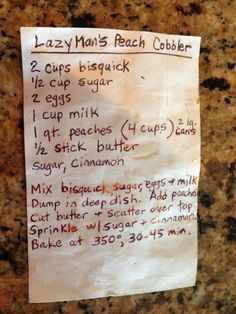 Lazy Man's Peach Cobbler
2 cups bisquick
1/2 cup sugar
2 eggs
1 cup milk
1 qt. peaches (4 cups) 2 lg. cans
1/2 stick butter
sugar, cinnamon
Mix bisquick, sugar, eggs + milk
Dump in deep dish. Add peaches
Cut butter + scatter over top
Sprinkle w/ sugar + cinnamon.
Bake at 350°, 30-45 min.